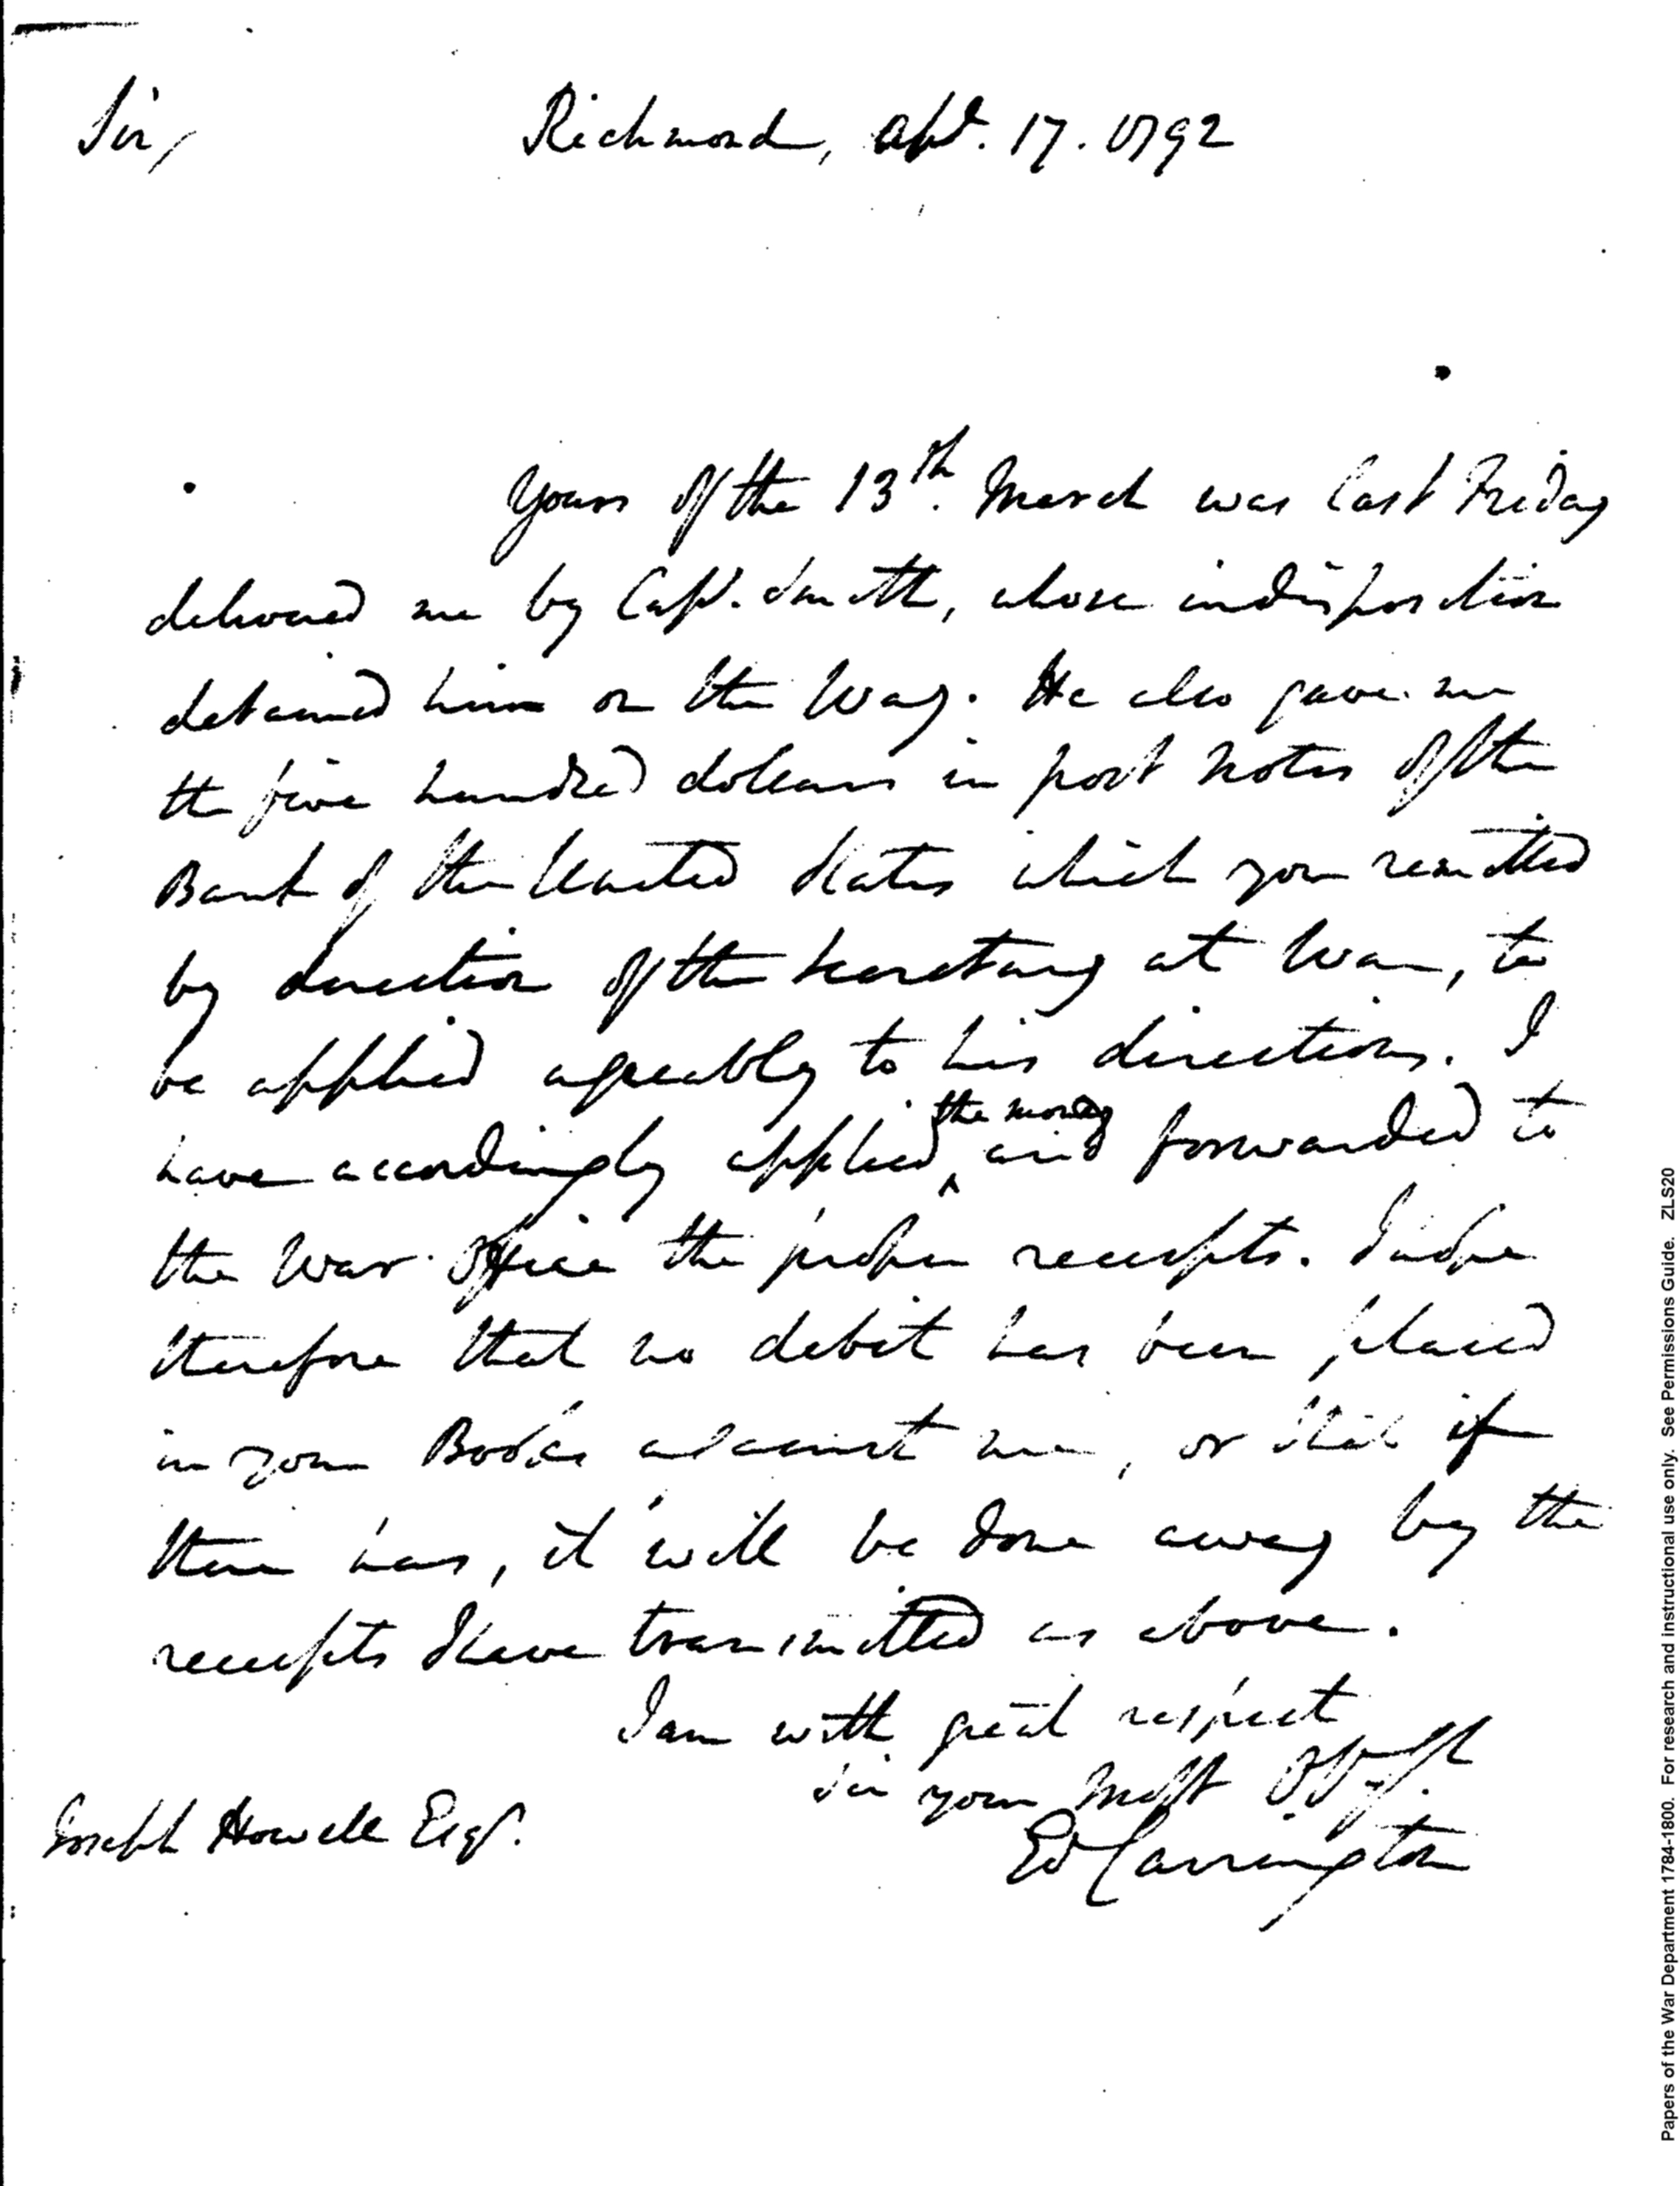 Sir, Richmond, apl. 17. 1792
Yours of the 13th. March was last Friday
delivered me by Capt. Smith, whose indisposition
detained him on the Way. He also gave me
the five hundred dollars in post notes of the
Bank of the United States which you remitted
by direction of the Secretary at War, to
be applied agreeably to his directions. I
the money
have accordingly applied ^ and forwarded to
the War Office the proper receipts. I
therefore that no debit has been placed
in your Books against me, or that if
there has, it will be done away by the
receipts I have transmitted as above.
I am with great respect
Sir your Most
Joseph Howell Esqr.
Ed Carrington
Papers of the War Department 1784-1800. For research and instructional use only. See Permissions Guide. ZLS20